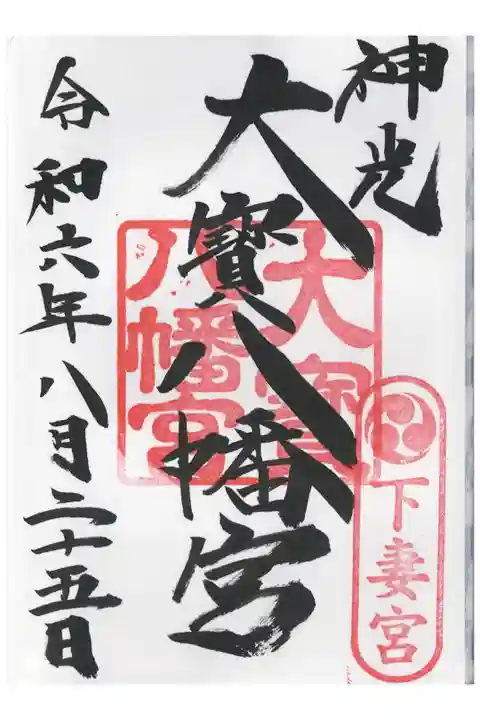 神光
大寶八幡宮
令和六年八月二十五日
大寶
八幡宮
下妻宮